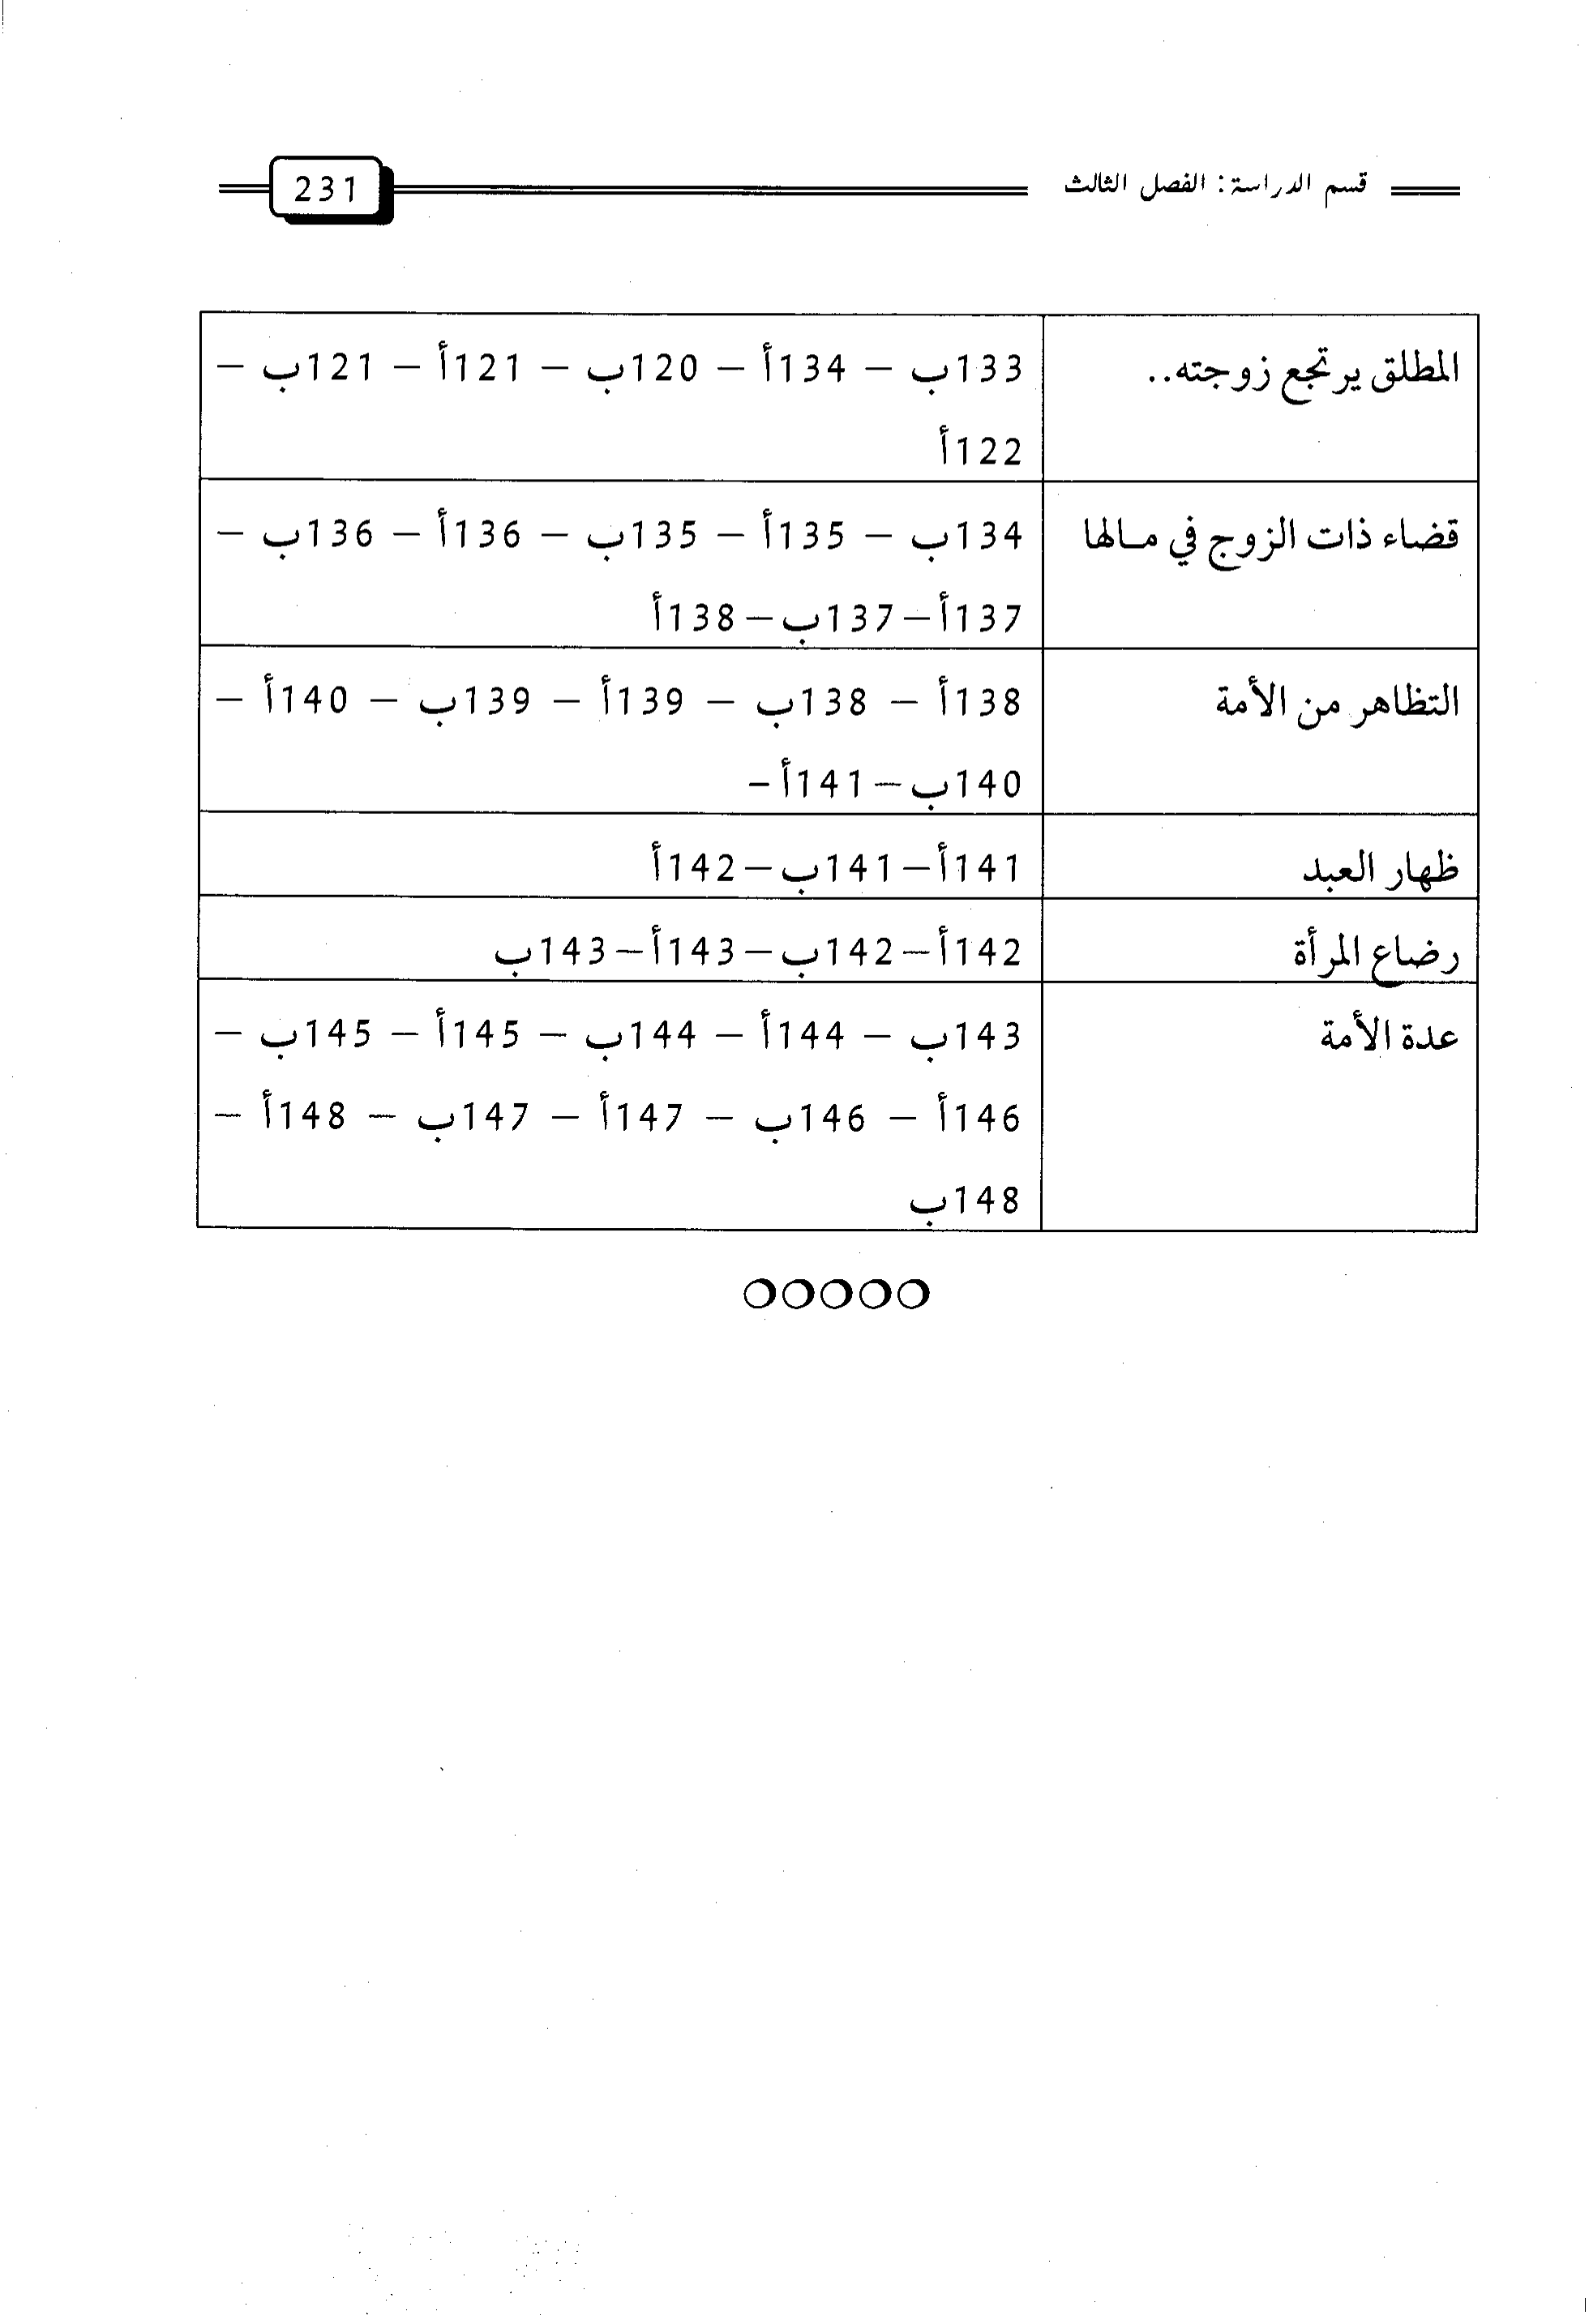 قسم الدراسة: الفصل الثالث 231
المطلق يرتجع زوجته.. 133ب – 134أ – 120ب – 121أ – 121ب –
122أ
قضاء ذات الزوج في مالها 134ب – 135أ – 135ب – 136أ – 136ب –
137أ–137ب–138أ
التظاهر من الأمة 138أ – 138ب – 139أ – 139ب – 140أ –
140ب–141أ-
ظهار العبد 141أ–141ب–142أ
رضاع المرأة 142أ–142ب–143أ–143ب
عدة الأمة 143ب – 144أ – 144ب – 145أ – 145ب –
146أ – 146ب – 147أ – 147ب – 148أ –
148ب